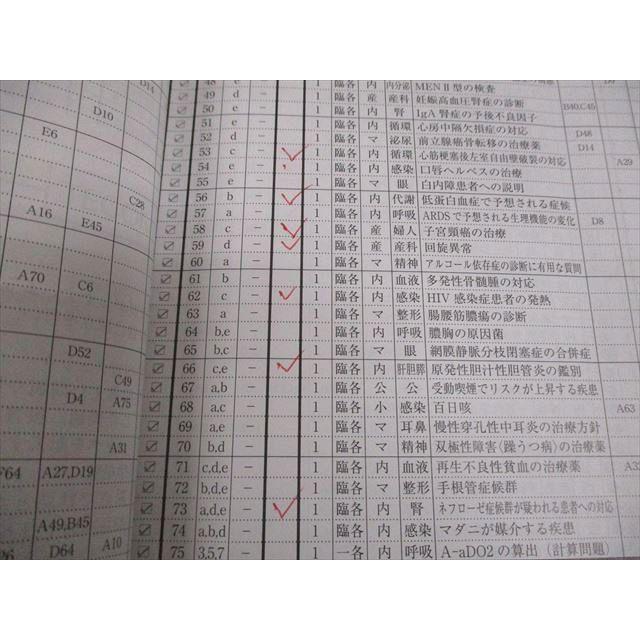 48 e － 1 臨各 内 内分泌 MENⅡ型の検査
D14 49 d － 1 臨各 産 産科 妊娠高血圧腎症の診断 B40,C45
D10 50 e － 1 臨各 内 腎 IgA腎症の予後不良因子
51 e － 1 臨各 内 循環 心房中隔欠損症の対応 D48
E6 52 d － 1 臨各 マ 泌尿 前立腺癌骨転移の治療薬 D14
53 c － 1 臨各 内 循環 心筋梗塞後左室自由壁破裂の対応 A29
54 e － 1 臨各 内 感染 口唇ヘルペスの治療
55 e － 1 臨各 マ 眼 白内障患者への説明
C28 56 b － 1 臨各 内 代謝 低蛋白血症で予想される症候
A16 E45 57 a － 1 臨各 内 呼吸 ARDSで予想される生理機能の変化 D8
58 c － 1 臨各 産 婦人 子宮頸癌の治療
59 d － 1 臨各 産 産科 回旋異常
60 a － 1 臨各 マ 精神 アルコール依存症の診断に有用な質問
A70 C6 61 b － 1 臨各 内 血液 多発性骨髄腫の対応
62 c － 1 臨各 内 感染 HIV感染症患者の発熱
63 a － 1 臨各 マ 整形 腸腰筋膿瘍の診断
64 b,e － 1 臨各 内 呼吸 膿胸の原因菌
D52 65 b,c － 1 臨各 マ 眼 網膜静脈分枝閉塞症の合併症
C49 66 c,e － 1 臨各 内 肝胆膵 原発性胆汁性胆管炎の鑑別
D4 A75 67 a,b － 1 臨各 公 公 受動喫煙でリスクが上昇する疾患
68 a,c － 1 臨各 小 感染 百日咳 A63
69 a,e － 1 臨各 マ 耳鼻 慢性穿孔性中耳炎の治療方針
A31 70 b,d － 1 臨各 マ 精神 双極性障害〈躁うつ病〉の治療薬
F64 A27,D19 71 c,d,e － 1 臨各 内 血液 再生不良性貧血の治療薬
72 b,d,e － 1 臨各 マ 整形 手根管症候群
73 a,d,e － 1 臨各 内 腎 ネフローゼ症候群が疑われる患者への対応
A49,B45 74 a,b,d － 1 臨各 内 感染 マダニが媒介する疾患
D64 A10 75 3,5,7 － 1 一各 内 呼吸 A-aDO2の算出（計算問題）